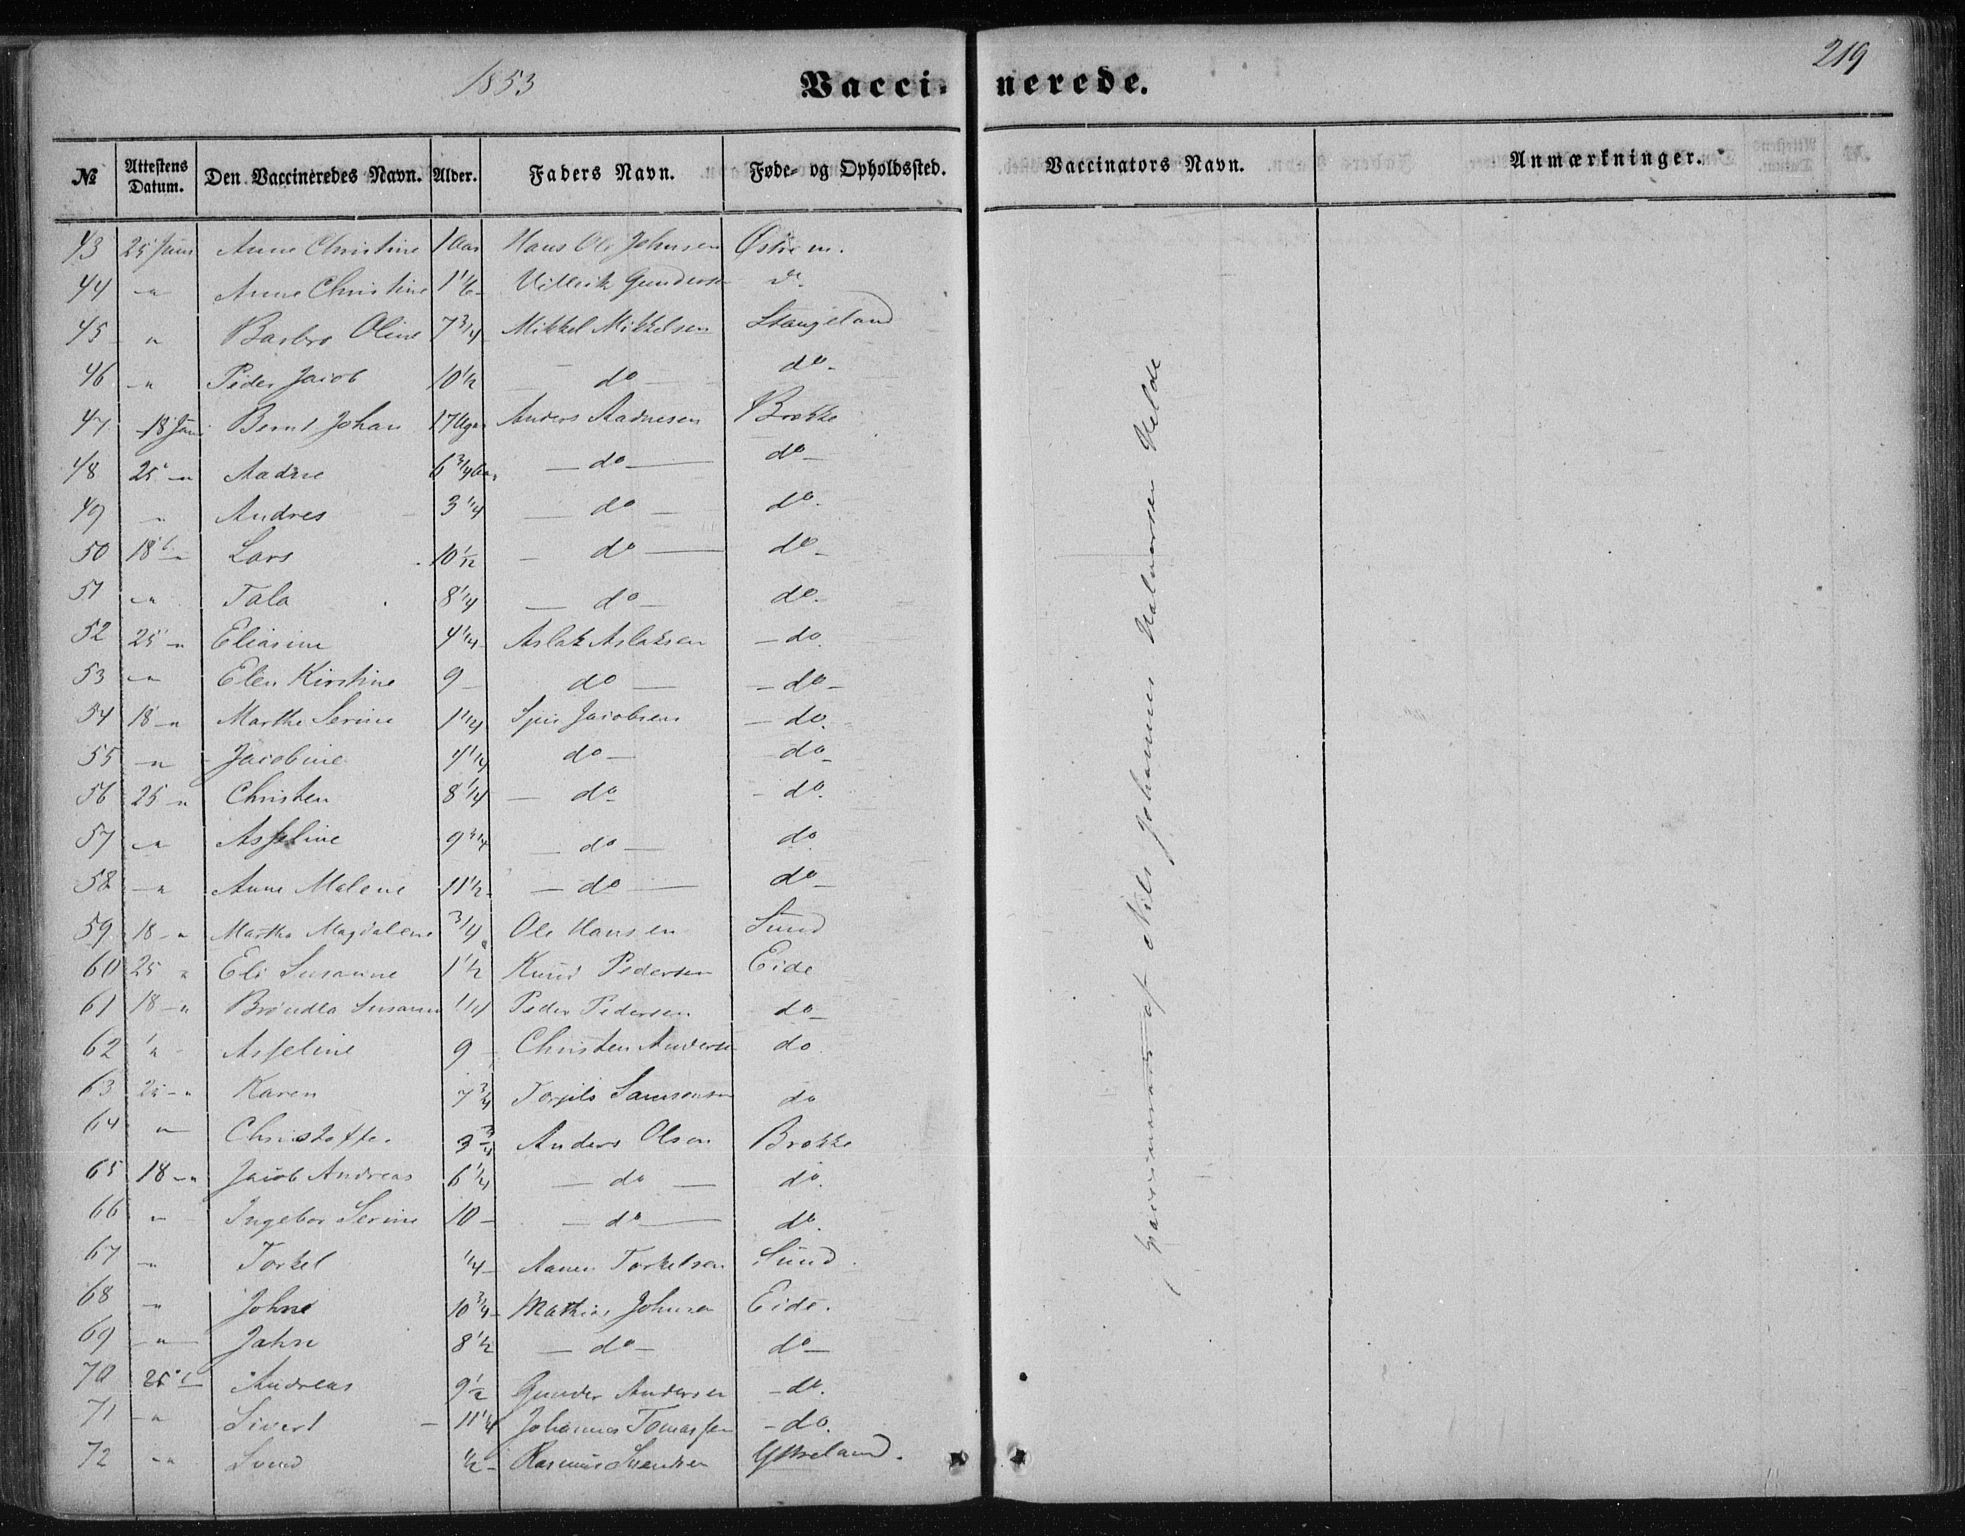 1853 Vaccinerede. 219
№ Attestens Datum. Den Vaccineredes Navn. Alder. Faders Navn. Føde- og Opholdssted. Vaccinators Navn. Anmærkninger.
43 25 Juni Anne Christine 1 Aar Hans Ole Johnsen Østrem.
44 " Anne Christine 1 1/2 Gunderse do.
45 " Barbro Oline 7 3/4 Mikkel Mikkelsen Stangeland
46 " Peder Jacob 10 1/2 do do
47 18 Juni Bernt Johan 17 Uger Anders Aadnesen Brekke
48 25 " Aadne 6 3/4 Aar do do
49 " Andres 3 1/4 do do.
50 18 " Lars 10 1/12 do do
51 " Tala 8 1/4 do do
52 25 " Eliasine 4 1/4 Aslak Aslaksen do
53 " Elen Kirstine 9 do do
54 18 " Marthe Serine 1 1/4 Jacobsen do.
55 " Jacobine 4 1/4 do do
56 25 " Christen 8 1/4 do do.
57 " Asseline 9 3/4 do do
58 " Anne Malene 11 1/2 do do
59 18 " Martha Magdalene 3/4 Ole Hansen Sund
60 25 " Eli Susanne 1 1/2 Knud Pedersen Eide
61 18 " Brøndla Susanne 1/4 Peder Pedersen do
62 " Asseline 9 Christen Anderse do
63 25 " Karen 7 3/4 Torjils Samsonsen do
64 " Christoffer 3 3/4 Anders Olsen Brekke
65 18 " Jacob Andreas 6 1/4 do do.
66 " Ingebor Serine 10 do do.
67 " Torkel 1/4 Torkelsen Sund.
68 " Johne 10 3/4 Mathias Johnsen Eide.
69 " Jahn 8 1/2 do do
70 25 " Andreas 9 1/2 Gunder Andersen do.
71 " Sivert 11 1/4 Johannes Tomassen do.
72 " Svend 1/2 Rasmus Svendsen Ytreland.
Vaccinerede af Nils Johannes Halvorsen Helde